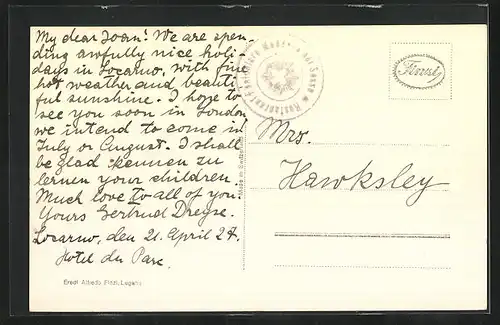 My dear Joan! We are spen-
ding awfully nice holi-
days in Locarno, with fine
hot weather and beauti-
ful sunshine. I hope to
see you soon in London
we intend to come in
July or August. I shall
be glad kennen zu
lernen your children.
Much love to all of you.
Yours Gertrud
Locarno, den 21. April 27.
Hotel du Parc.
Mrs.
Hawksley